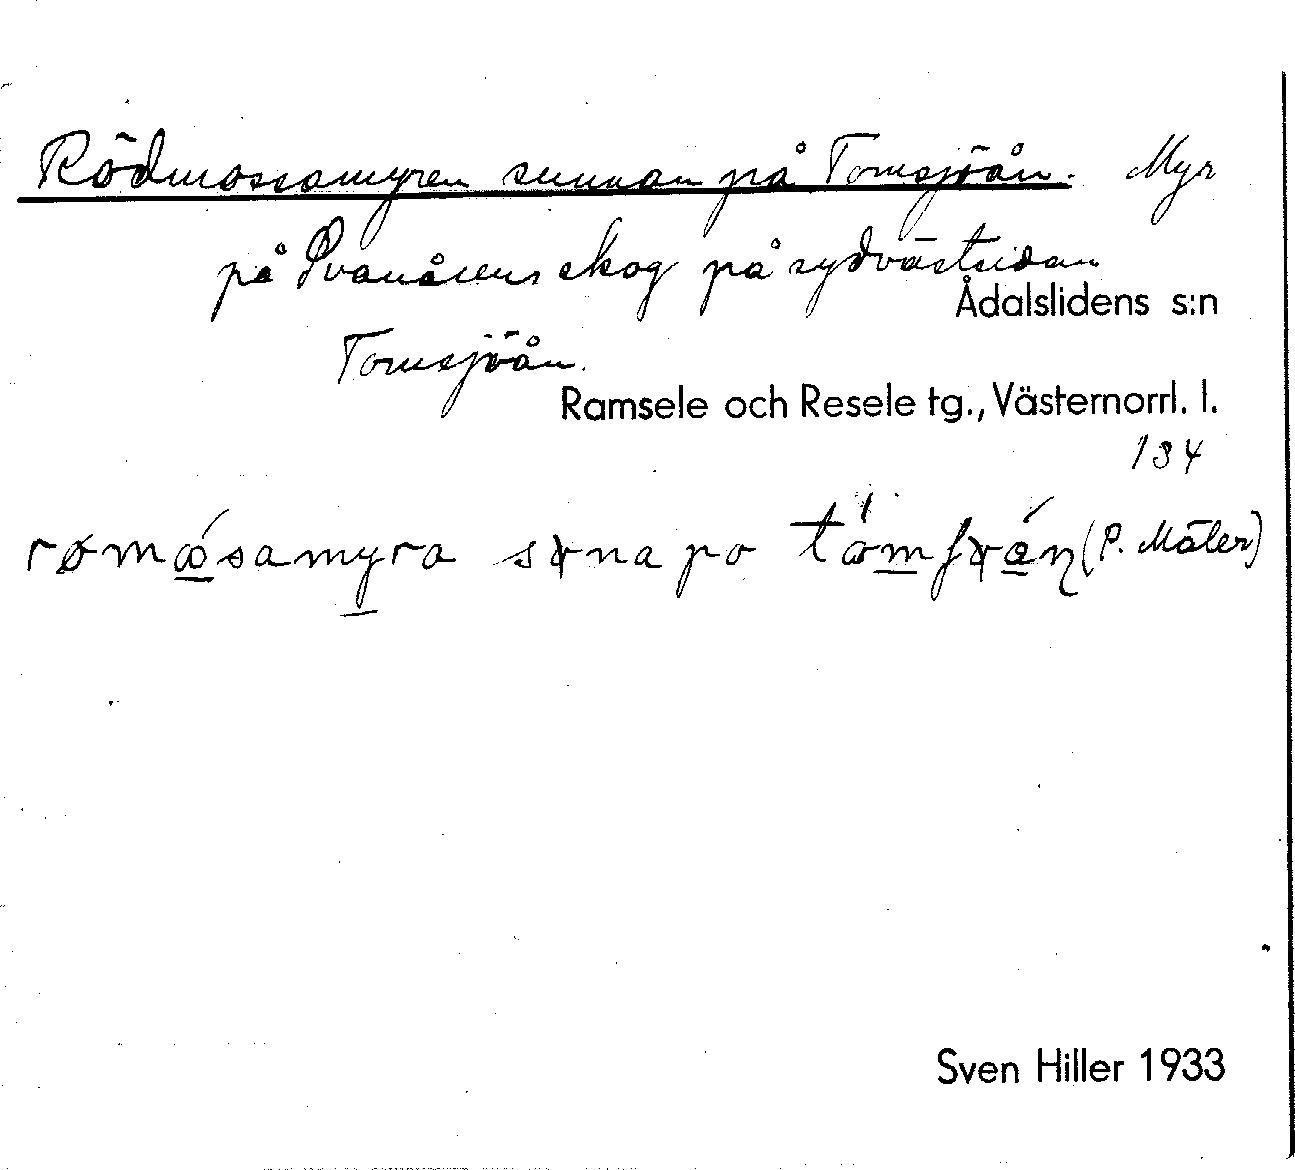 Rödmossamyren sunnan på Tomsjöån. Myr
på Svanåsens skog på sydvästsidan
Ådalslidens s:n
Tomsjöån.
Ramsele och Resele tg., Västernorrl. l.
134
po (P. Mäler)
Sven Hiller 1933